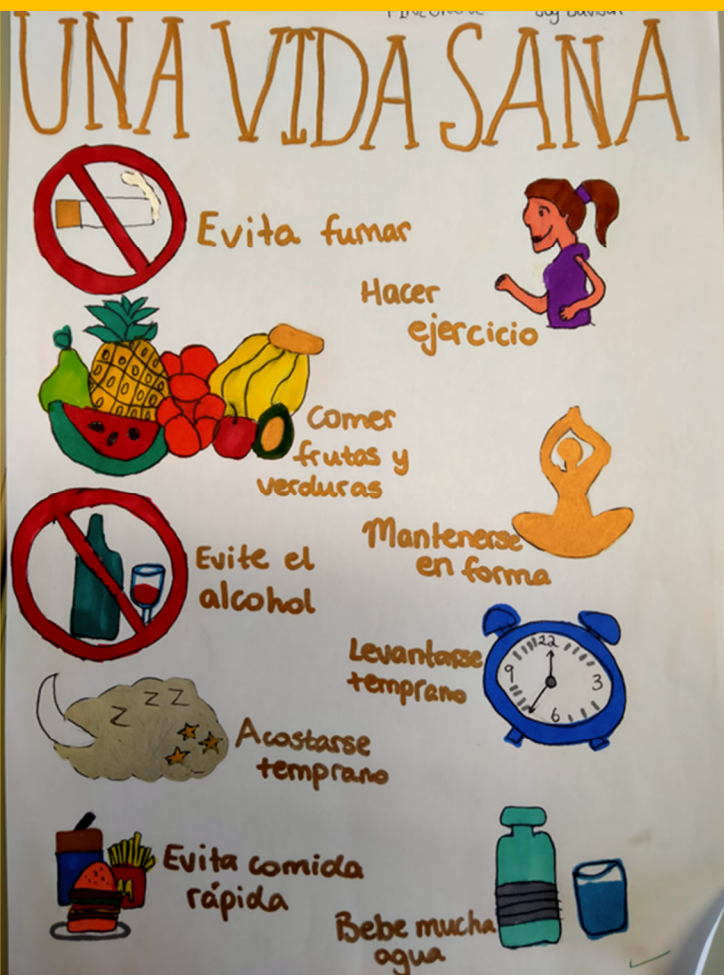 UNA VIDA SANA
Evita fumar
Hacer
ejercicio
Comer
frutas y
verduras
Mantenerse
en forma
Evite el
alcohol
Levantarse
temprano
22
9
3
6
z z z
Acostarse
temprano
Evita comida
rápida
M
Bebe mucha
agua